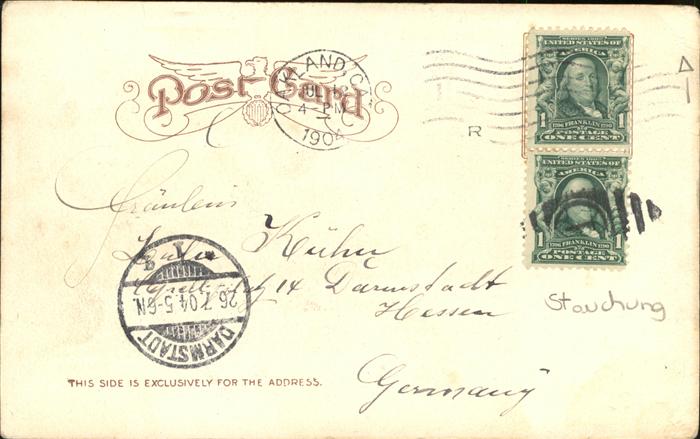 Post Card
OAKLAND, CAL.
JUL
4 - PM
1904
R
SERIES 1902
UNITED STATES OF
AMERICA
1 1790 FRANKLIN 1790 1
POSTAGE
ONE CENT
SERIES 1902
UNITED STATES OF
AMERICA
1 1790 FRANKLIN 1790 1
POSTAGE
ONE CENT
Fräulein
Kühn
14 Darmstadt
Hessen
Germany
Stauchung
DARMSTADT
26.7.04.5-6N.
THIS SIDE IS EXCLUSIVELY FOR THE ADDRESS.